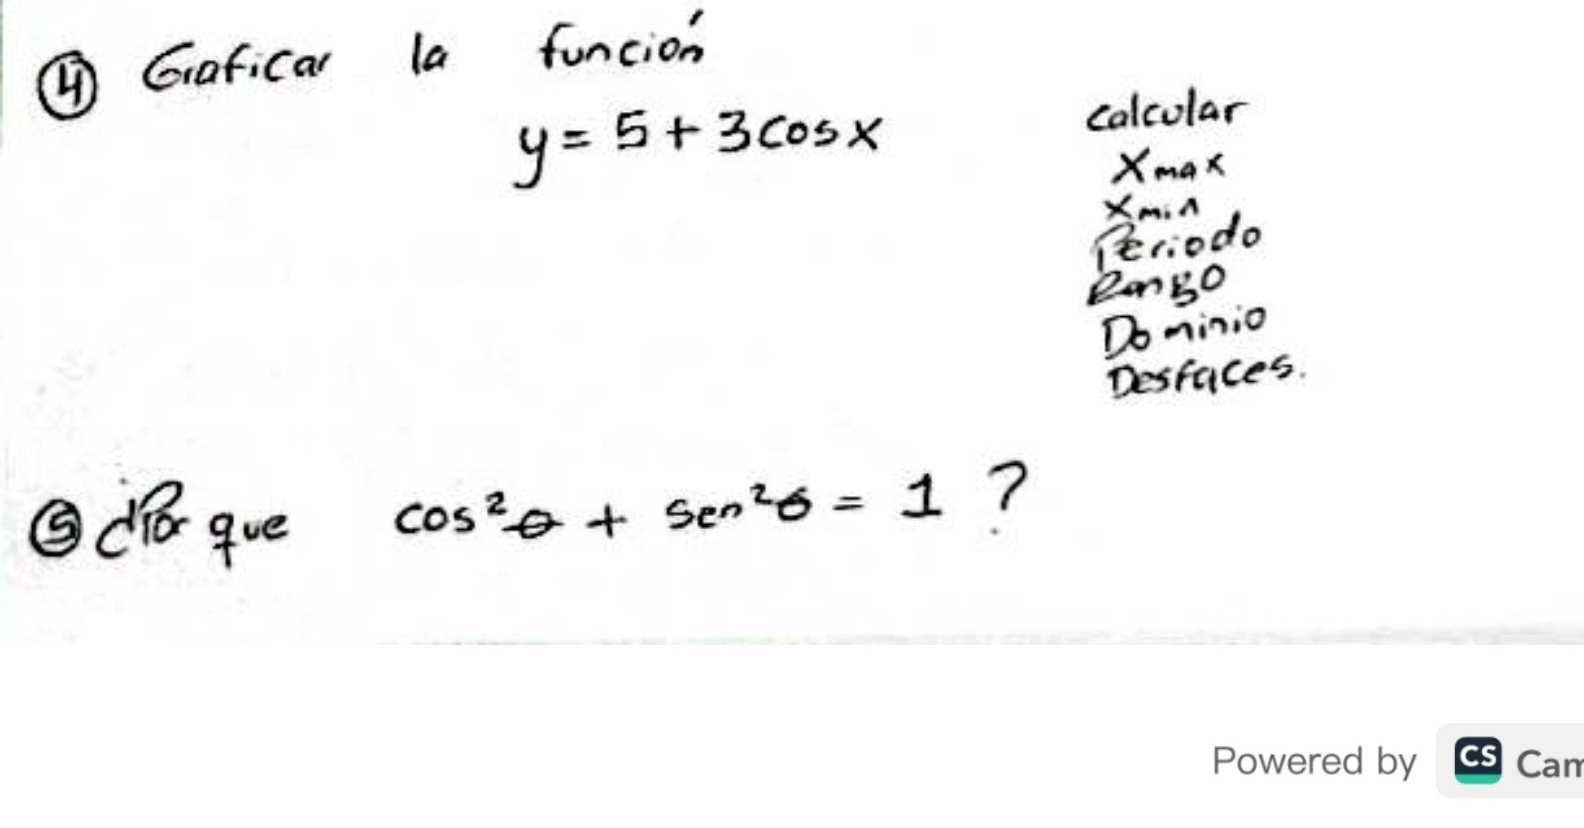 ④ Graficar la función
y = 5 + 3 cos x
calcular
Xmax
Xmin
Periodo
Rango
Dominio
Desfaces.
⑤ ¿Por que cos²θ + sen²θ = 1 ?
Powered by CS Cam